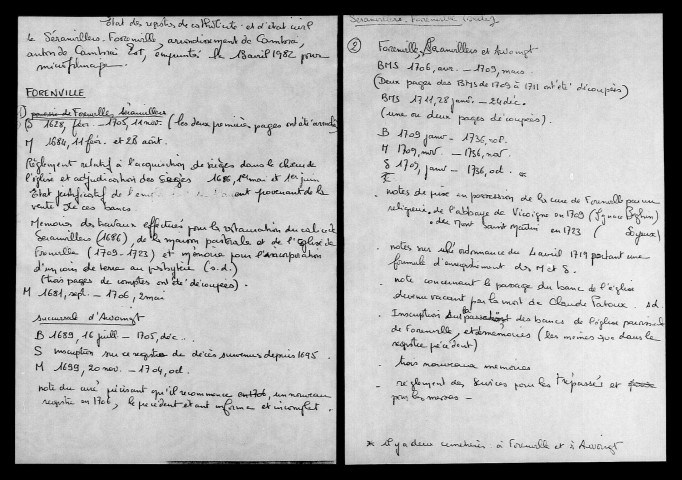 Etat des registres de catholicité et d'état civil
de Séranvillers-Forenville, arrondissement de Cambrai,
canton de Cambrai Est, empruntés le 13 avril 1982 pour
microfilmage.
FORENVILLE
1) paroisse de Forenville Séranvillers
B 1628, fév. - 1705, 11 nov. (les deux premières pages ont été arrachées)
M 1684, 11 fév. et 28 août.
Réglement relatif à l'acquisition de sièges dans le chœur de
l'église et adjudication des sièges 1686, 1er mai et 1er juin
Etat justificatif de l' provenant de la
vente de ces bancs
Memoires des travaux effectués pour la restauration du
Séranvillers (1686), de la maison pastorale et de l'église de
Forenville (1709-1723) et mémoire pour l'incorporation
d'un coin de terre au presbytère (s.d.)
(trois pages de comptes ont été découpées).
M 1681, sept. - 1706, 2 mai
succursale d'Awoingt
B 1689, 16 juill - 1705, déc.
S inscription sur ce registre de décès survenus depuis 1695.
M 1699, 20 nov. - 1704, oct.
note du curé précisant qu'il recommence en 1706, un nouveau
registre en 1706, le précédent étant informe et incomplet.
Séranvillers, Forenville
② Forenville, Séranvillers et Awoingt
BMS 1706, avr. - 1709, mars.
(Deux pages des BMS de 1709 à 1711 ont été découpées)
BMS 1711, 28 janv. - 24 déc.
(une ou deux pages découpées).
B 1709 janv - 1736, oct.
M 1709, nov. - 1736, nov.
S 1709, janv - 1736, oct. *
. notes de prise en possession de la cure de Forenville par un
religieux . de l'abbaye de Vicoigne en 1709
. du Mont Saint Martin en 1723
- notes sur l'ordonnance du 4 avril 1719 portant une
formule d'enregistrement des M et S.
. note concernant le passage du banc de l'église
devenu vacant par la mort de Claude Pataux. s.d.
. Inscription sur la des bancs de l'église paroissiale
de Forenville, et des mémoires (les mêmes que dans le
registre précédent)
- trois nouveaux mémoires
- réglement des services pour les trépassés et
pour les messes -
* il y a deux cimetières à Forenville et à Awoingt